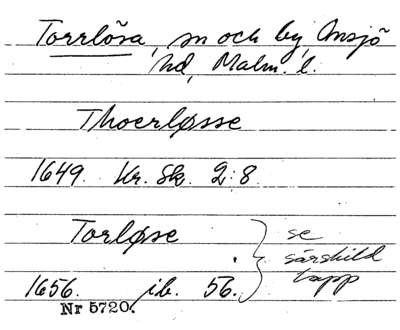 Torrlösa, sn och by, Onsjö
hd, Malm. l.
Thoerløsse
1649. Kr. Sk. 2:8.
Torløse
1656. ib. 56.
se
särskild
lapp
Nr 5720.